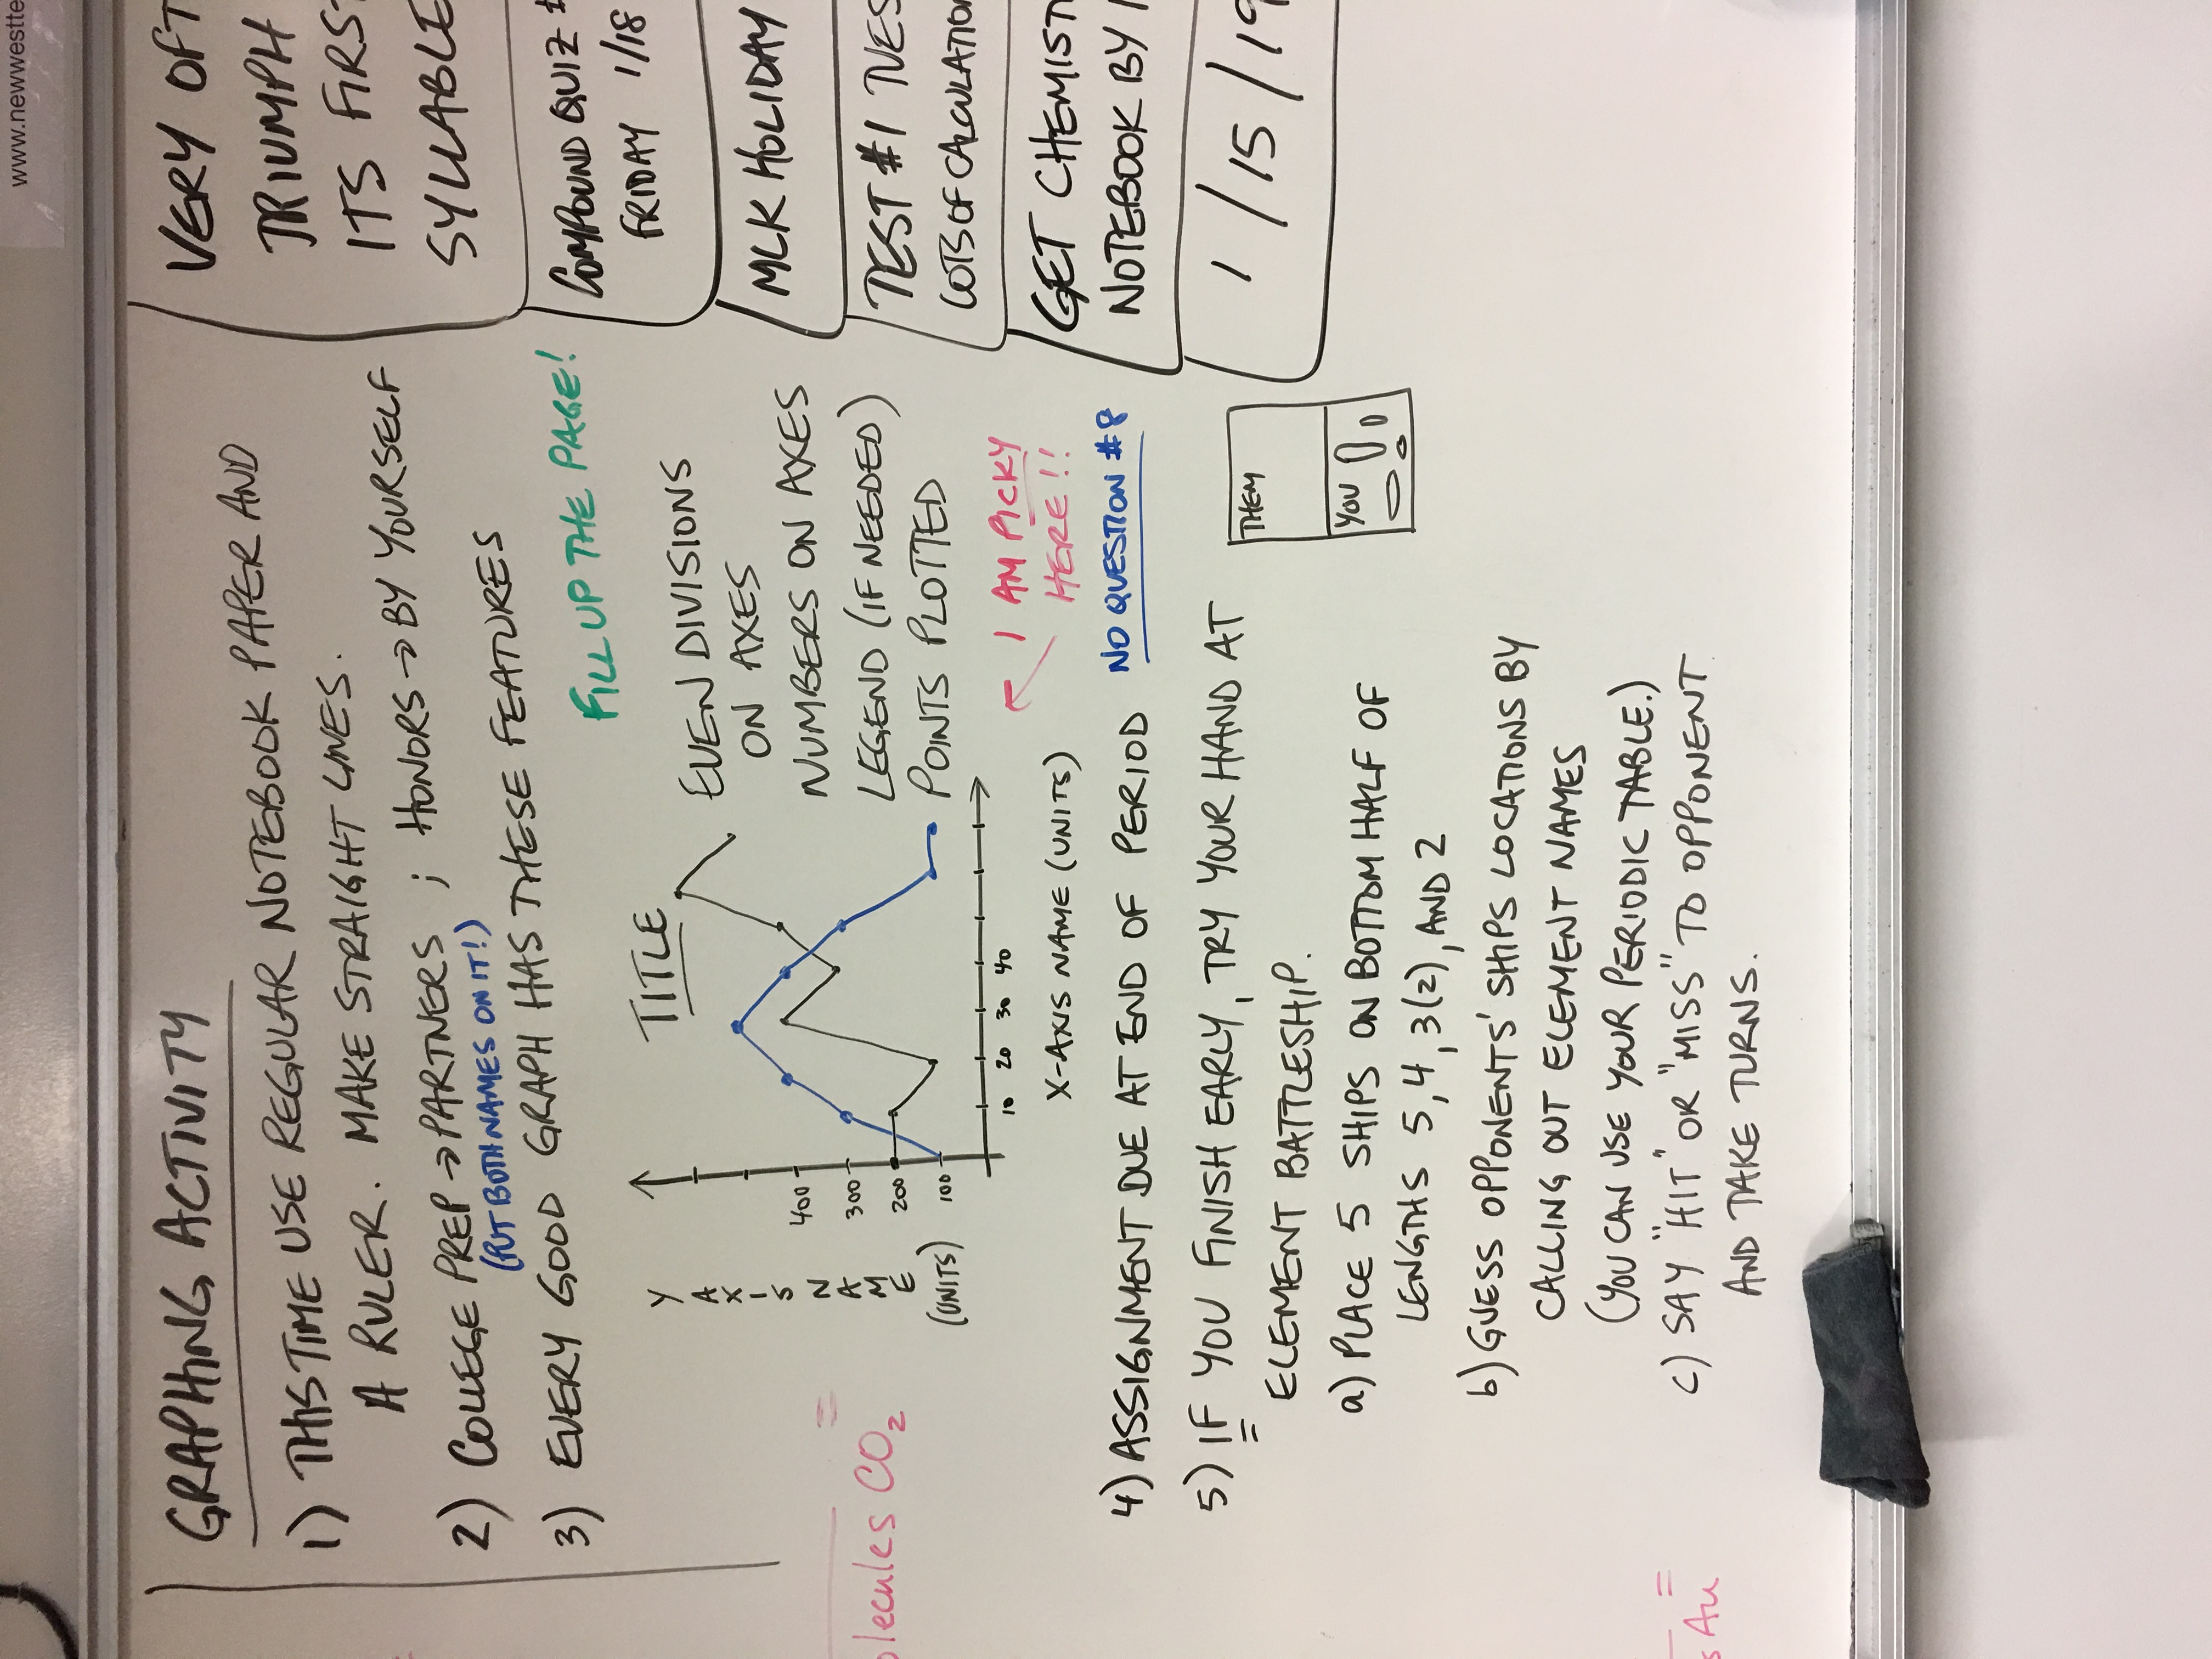 GRAPHING ACTIVITY
1) THIS TIME USE REGULAR NOTEBOOK PAPER AND
A RULER. MAKE STRAIGHT LINES.
2) COLLEGE PREP → PARTNERS ; HONORS → BY YOURSELF
(PUT BOTH NAMES ON IT!)
3) EVERY GOOD GRAPH HAS THESE FEATURES
FILL UP THE PAGE!
TITLE
Y AXIS NAME
(UNITS)
400
300
200
100
10 20 30 40
X-AXIS NAME (UNITS)
EVEN DIVISIONS
ON AXES
NUMBERS ON AXES
LEGEND (IF NEEDED)
POINTS PLOTTED
I AM PICKY
HERE!!
4) ASSIGNMENT DUE AT END OF PERIOD
NO QUESTION #8
5) IF YOU FINISH EARLY, TRY YOUR HAND AT
ELEMENT BATTLESHIP.
a) PLACE 5 SHIPS ON BOTTOM HALF OF
LENGTHS 5, 4, 3(2), AND 2
b) GUESS OPPONENTS' SHIPS LOCATIONS BY
CALLING OUT ELEMENT NAMES
(YOU CAN USE YOUR PERIODIC TABLE.)
c) SAY "HIT" OR "MISS" TO OPPONENT
AND TAKE TURNS.
THEM
YOU
VERY OFT
TRIUMPH
ITS FIRST
SYLLABLE
COMPOUND QUIZ #
FRIDAY 1/18
MLK HOLIDAY
TEST #1 TUES
LOTS OF CALCULATION
GET CHEMIST
NOTEBOOK BY
1/15/19
olecules CO₂ =
s Au =
www.newweste